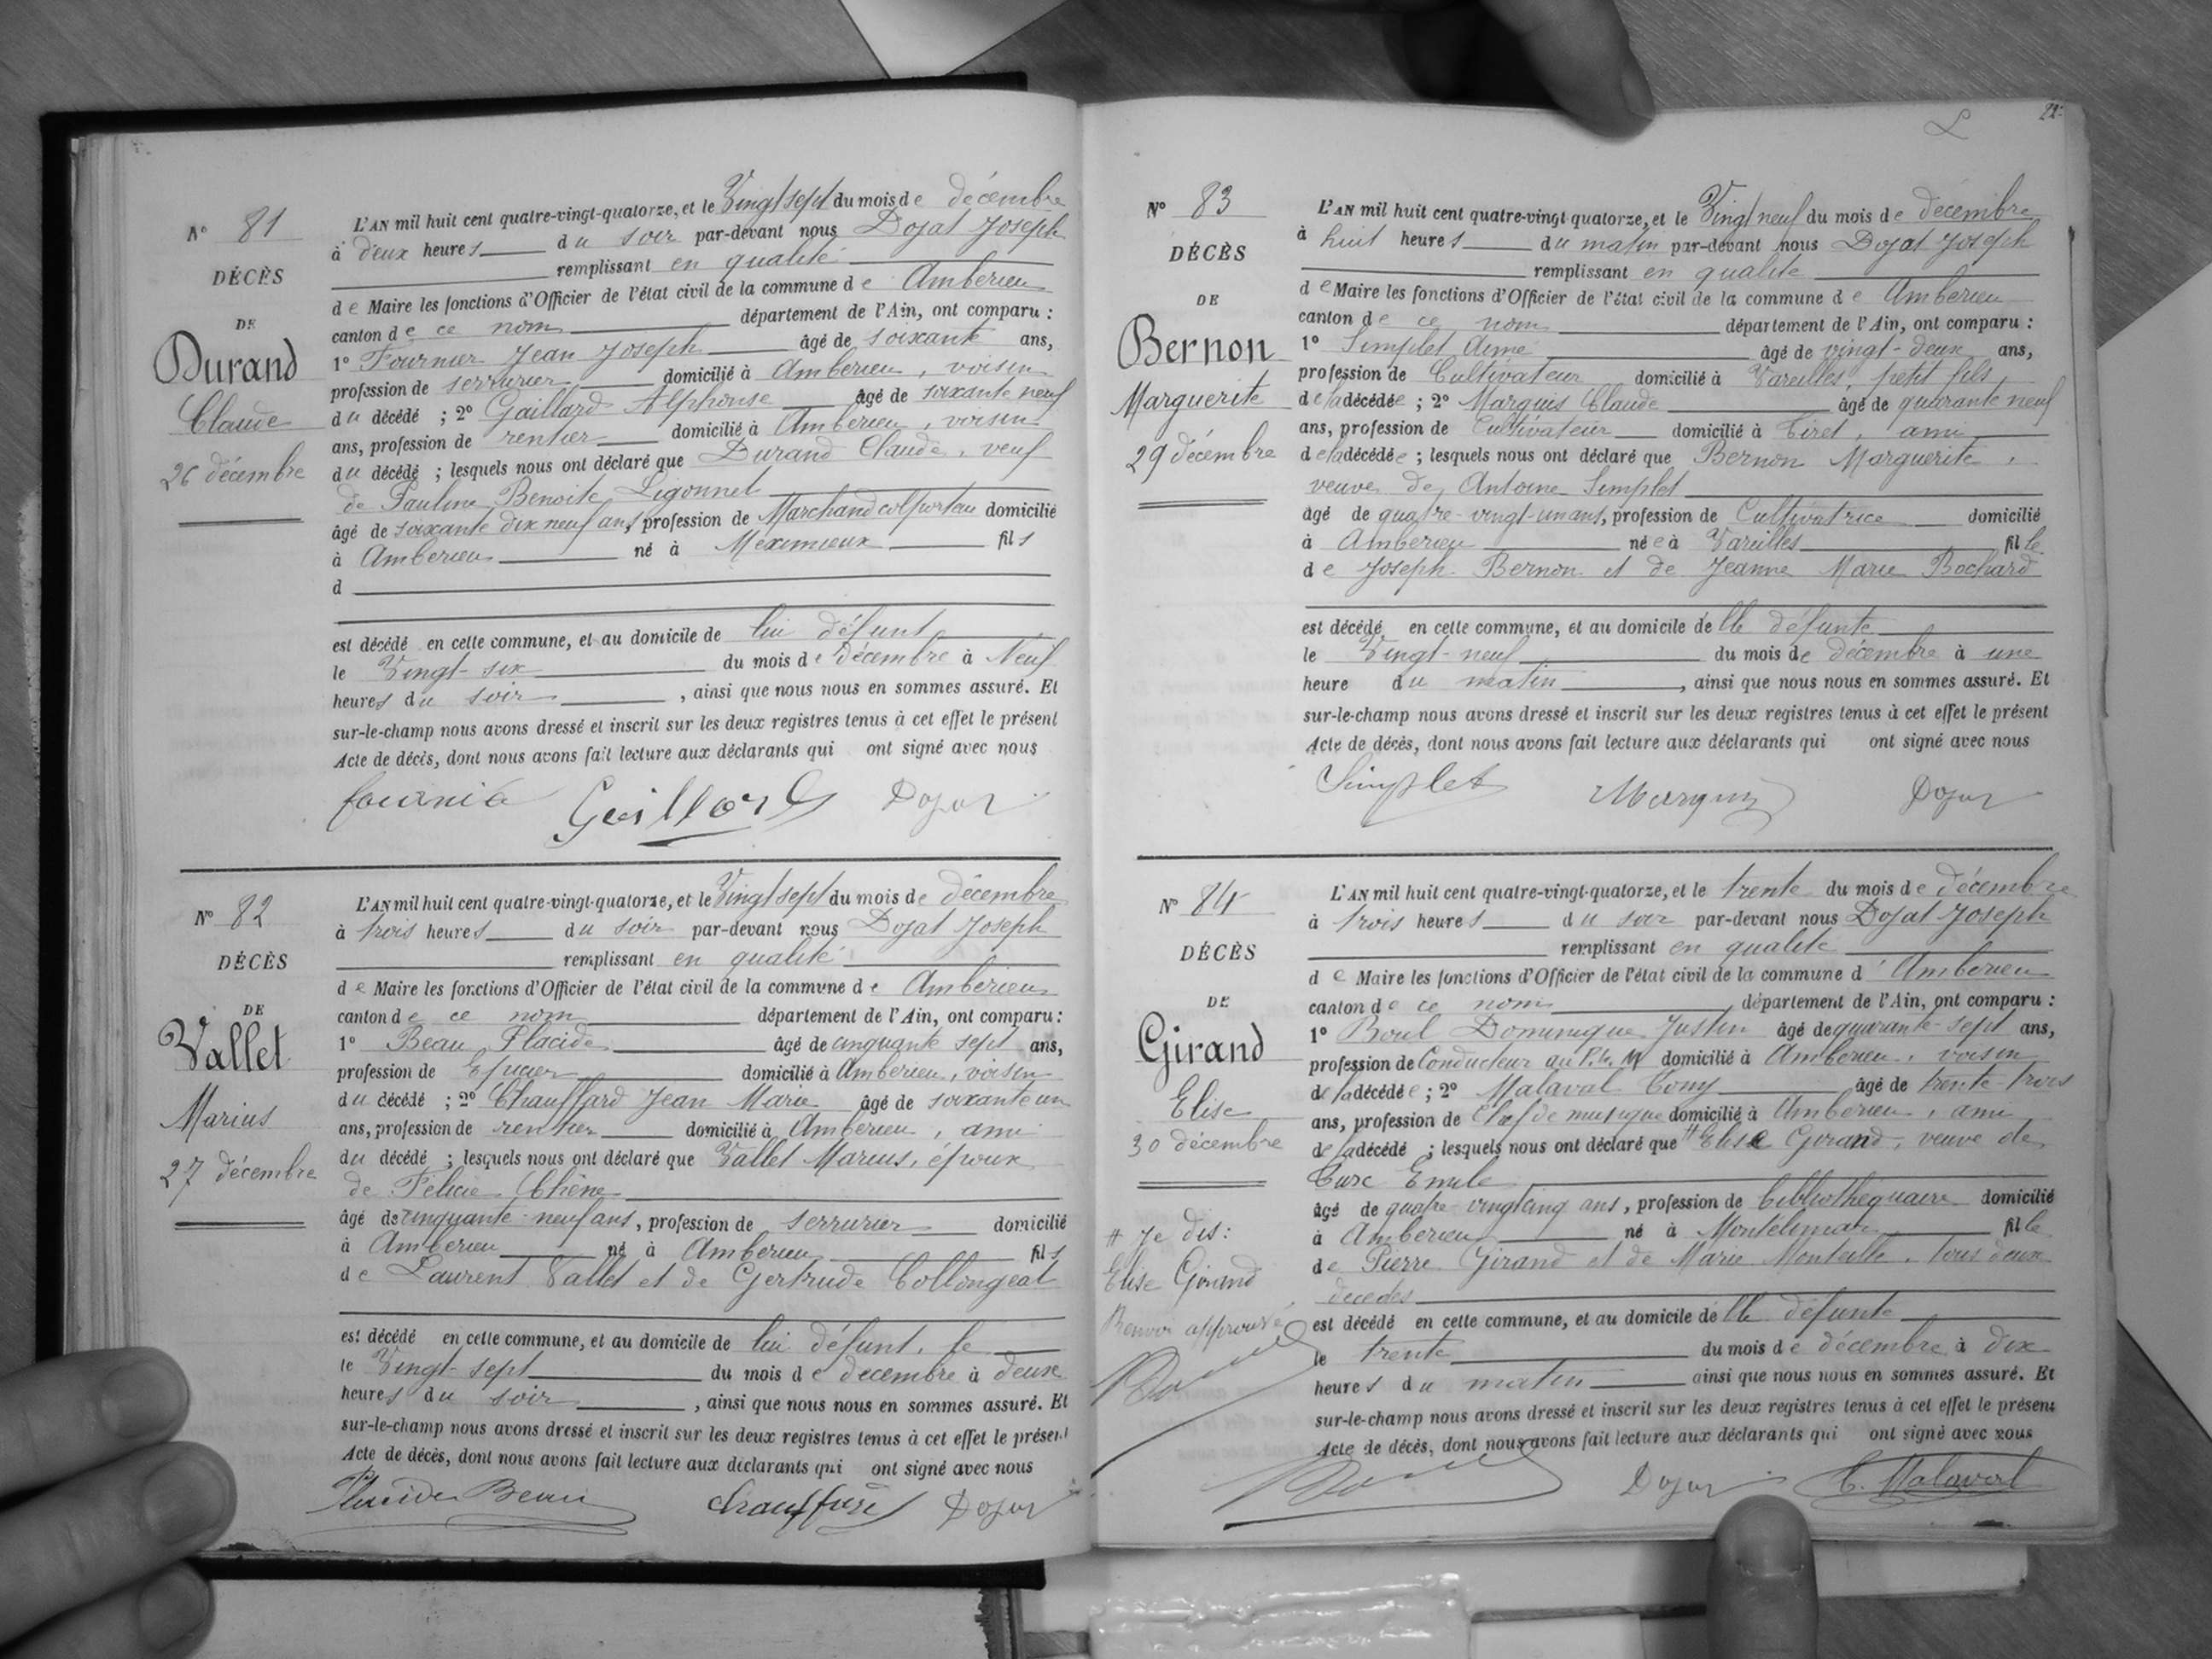 N° 81
DÉCÈS
DE
Durand
Claude
26 décembre
L'AN mil huit cent quatre-vingt-quatorze, et le Vingt sept du mois de décembre
à deux heures du soir par-devant nous Dojat Joseph
remplissant en qualité
de Maire les fonctions d'Officier de l'état civil de la commune de Ambérieu
canton de ce nom département de l'Ain, ont comparu :
1° Fournier Jean Joseph âgé de soixante ans,
profession de serrurier domicilié à Ambérieu, voisin
du décédé ; 2° Gaillard Alphonse âgé de soixante neuf
ans, profession de rentier domicilié à Ambérieu, voisin
du décédé ; lesquels nous ont déclaré que Durand Claude, veuf
de Pauline Benoite Ligonnet
âgé de soixante dix neuf ans, profession de Marchand colporteur domicilié
à Ambérieu né à Meximieux fils
d
est décédé en cette commune, et au domicile de lui défunt
le Vingt-six du mois de décembre à Neuf
heures du soir, ainsi que nous nous en sommes assuré. Et
sur-le-champ nous avons dressé et inscrit sur les deux registres tenus à cet effet le présent
Acte de décès, dont nous avons fait lecture aux déclarants qui ont signé avec nous
fournié Gaillard Dojat
N° 82
DÉCÈS
DE
Vallet
Marius
27 décembre
L'AN mil huit cent quatre-vingt-quatorze, et le Vingt sept du mois de décembre
à trois heures du soir par-devant nous Dojat Joseph
remplissant en qualité
de Maire les fonctions d'Officier de l'état civil de la commune de Ambérieu
canton de ce nom département de l'Ain, ont comparu :
1° Beau Placide âgé de cinquante sept ans,
profession de Epicier domicilié à Ambérieu, voisin
du décédé ; 2° Chauffard Jean Marie âgé de soixante un
ans, profession de rentier domicilié à Ambérieu, ami
du décédé ; lesquels nous ont déclaré que Vallet Marius, époux
de Félicie Chêne
âgé de cinquante-neuf ans, profession de serrurier domicilié
à Ambérieu né à Ambérieu fils
de Laurent Vallet et de Gertrude Collongeat
est décédé en cette commune, et au domicile de lui défunt, le
le Vingt-sept du mois de décembre à deux
heures du soir, ainsi que nous nous en sommes assuré. Et
sur-le-champ nous avons dressé et inscrit sur les deux registres tenus à cet effet le présent
Acte de décès, dont nous avons fait lecture aux déclarants qui ont signé avec nous
Placide Beau Chauffard Dojat
22
N° 83
DÉCÈS
DE
Bernon
Marguerite
29 décembre
L'AN mil huit cent quatre-vingt quatorze, et le Vingt neuf du mois de décembre
à huit heures du matin par-devant nous Dojat Joseph
remplissant en qualité
de Maire les fonctions d'Officier de l'état civil de la commune de Ambérieu
canton de ce nom département de l'Ain, ont comparu :
1° Simplet Aimé âgé de vingt-deux ans,
profession de Cultivateur domicilié à Vareilles, petit fils
de la décédée ; 2° Marquis Claude âgé de quarante neuf
ans, profession de Cultivateur domicilié à Tiret, ami
de la décédée ; lesquels nous ont déclaré que Bernon Marguerite,
veuve de Antoine Simplet
âgé de quatre-vingt-un ans, profession de Cultivatrice domicilié
à Ambérieu née à Vareilles fille
de Joseph Bernon et de Jeanne Marie Bochard
est décédé en cette commune, et au domicile de lle défunte
le Vingt-neuf du mois de décembre à une
heure du matin, ainsi que nous nous en sommes assuré. Et
sur-le-champ nous avons dressé et inscrit sur les deux registres tenus à cet effet le présent
Acte de décès, dont nous avons fait lecture aux déclarants qui ont signé avec nous
Simplet Marquis Dojat
N° 84
DÉCÈS
DE
Girand
Elise
30 décembre
# Je dis :
Elise Girand
Renvoi approuvé
L'AN mil huit cent quatre-vingt-quatorze, et le trente du mois de décembre
à trois heures du soir par-devant nous Dojat Joseph
remplissant en qualité
de Maire les fonctions d'Officier de l'état civil de la commune d' Ambérieu
canton de ce nom département de l'Ain, ont comparu :
1° Dominique Justin âgé de quarante-sept ans,
profession de Conducteur au P.L.M domicilié à Ambérieu, voisin
de la décédée ; 2° Malaval Tony âgé de trente-trois
ans, profession de Chef de musique domicilié à Ambérieu, ami
de la décédé ; lesquels nous ont déclaré que # Elise Girand, veuve de
Emile
âgé de quatre-vingt cinq ans, profession de bibliothéquaire domicilié
à Ambérieu né à Montélimar fille
de Pierre Girand et de Marie Monteille, tous deux
décédés
est décédé en cette commune, et au domicile de lle défunte
le trente du mois de décembre à dix
heures du matin ainsi que nous nous en sommes assuré. Et
sur-le-champ nous avons dressé et inscrit sur les deux registres tenus à cet effet le présent
Acte de décès, dont nous avons fait lecture aux déclarants qui ont signé avec nous
Dojat C. Malaval